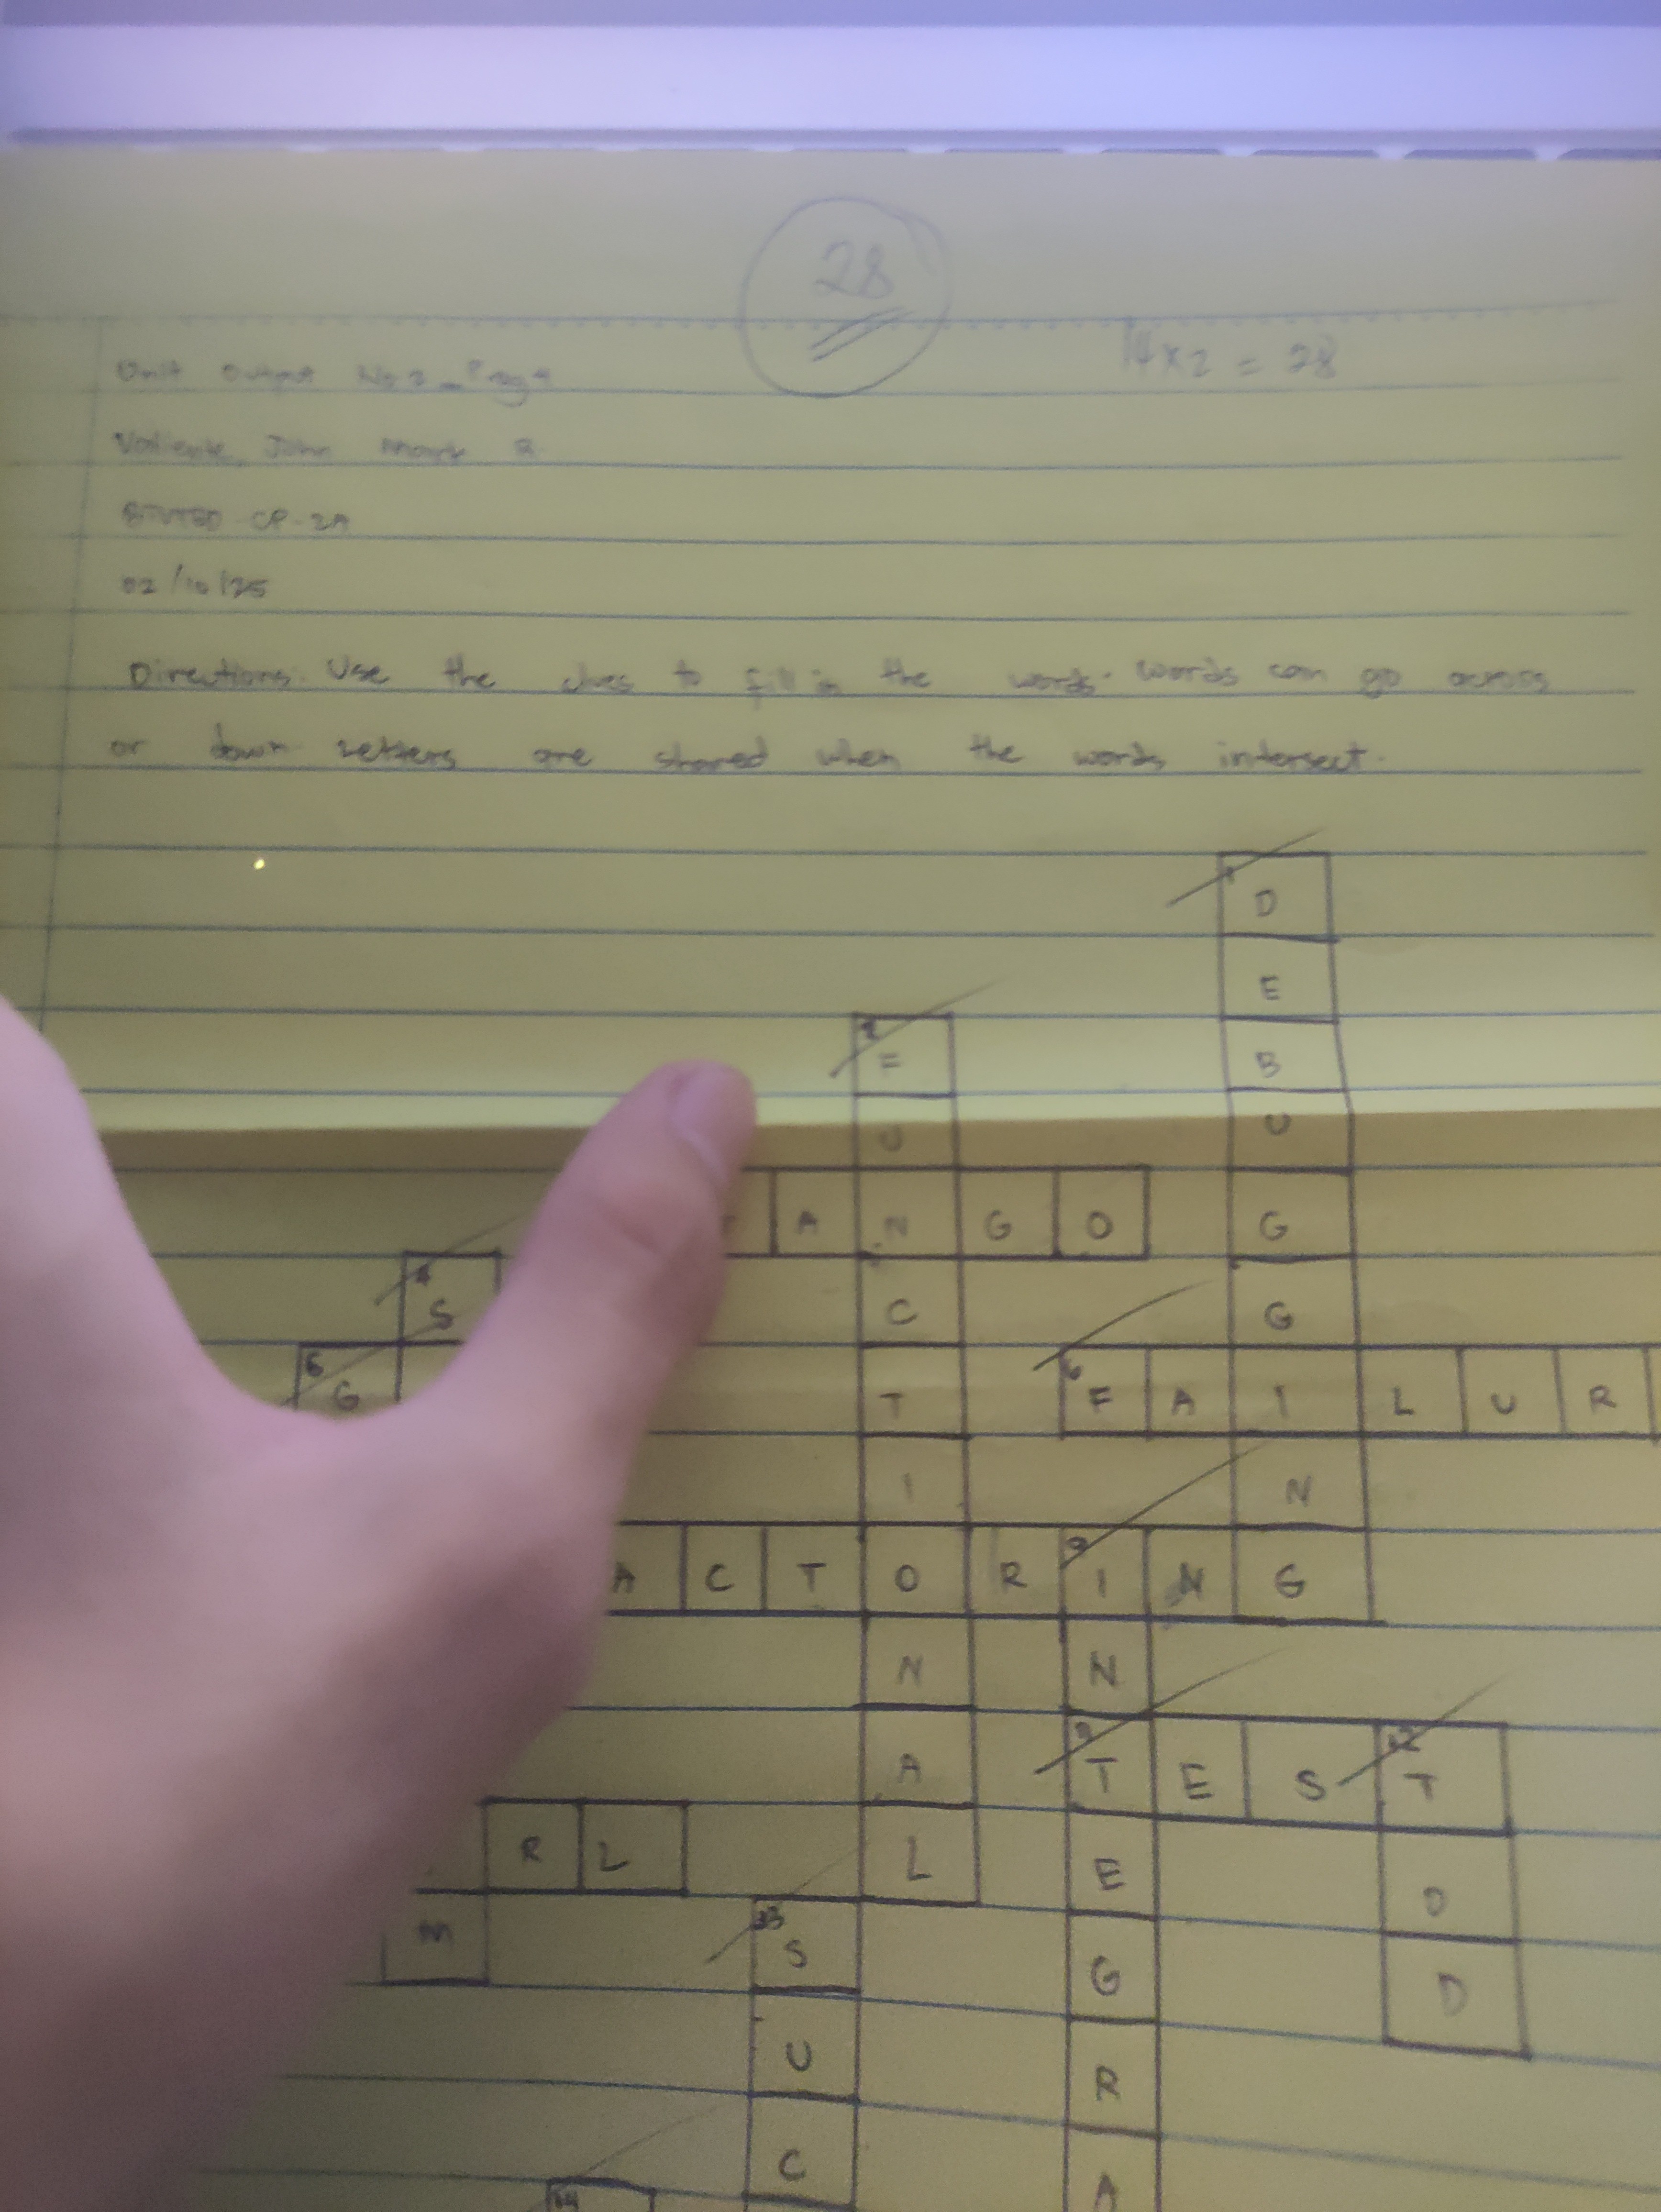 28
14x2 = 28
Unit Output No.2_Prog4
Valiente, John Mark R.
BTVTED-CP-2A
02/10/25
Directions: Use the clues to fill in the words. Words can go across
or down. Letters are shared when the words intersect.
D
E
2 F B
U U
A N G O G
4 S C G
5 G T 6 F A I L U R
I N
A C T O R 9 I N G
N N
A T E S 12 T
R L L E O
M 13 S G D
U R
C A
14